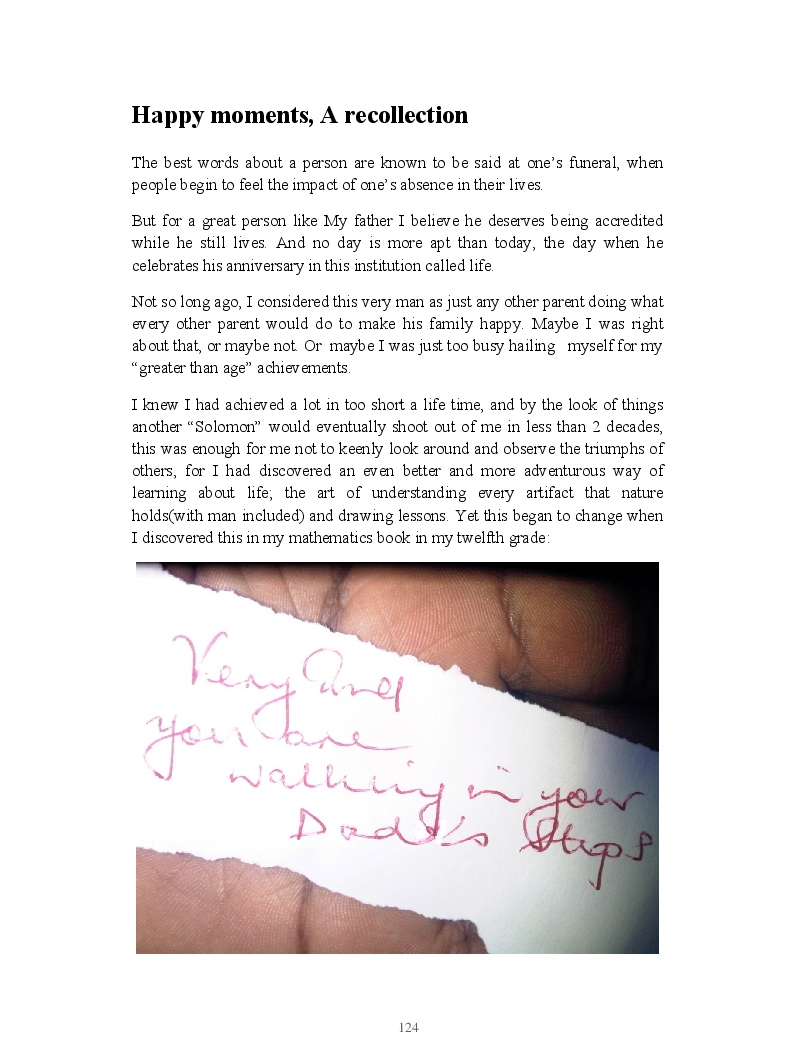 Happy moments, A recollection
The best words about a person are known to be said at one’s funeral, when
people begin to feel the impact of one’s absence in their lives.
But for a great person like My father I believe he deserves being accredited
while he still lives. And no day is more apt than today, the day when he
celebrates his anniversary in this institution called life.
Not so long ago, I considered this very man as just any other parent doing what
every other parent would do to make his family happy. Maybe I was right
about that, or maybe not. Or maybe I was just too busy hailing myself for my
“greater than age” achievements.
I knew I had achieved a lot in too short a life time, and by the look of things
another “Solomon” would eventually shoot out of me in less than 2 decades,
this was enough for me not to keenly look around and observe the triumphs of
others, for I had discovered an even better and more adventurous way of
learning about life; the art of understanding every artifact that nature
holds(with man included) and drawing lessons. Yet this began to change when
I discovered this in my mathematics book in my twelfth grade:
Very
you are
walking in your
Dad's Steps
124